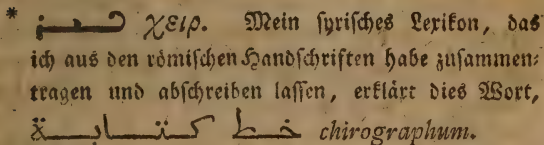 * χειρ. Mein ſyriſches Lexikon, das
ich aus den römiſchen Handſchriften habe zuſammen⸗
tragen und abſchreiben laſſen, erklärt dies Wort,
خط كتابة chirographum.